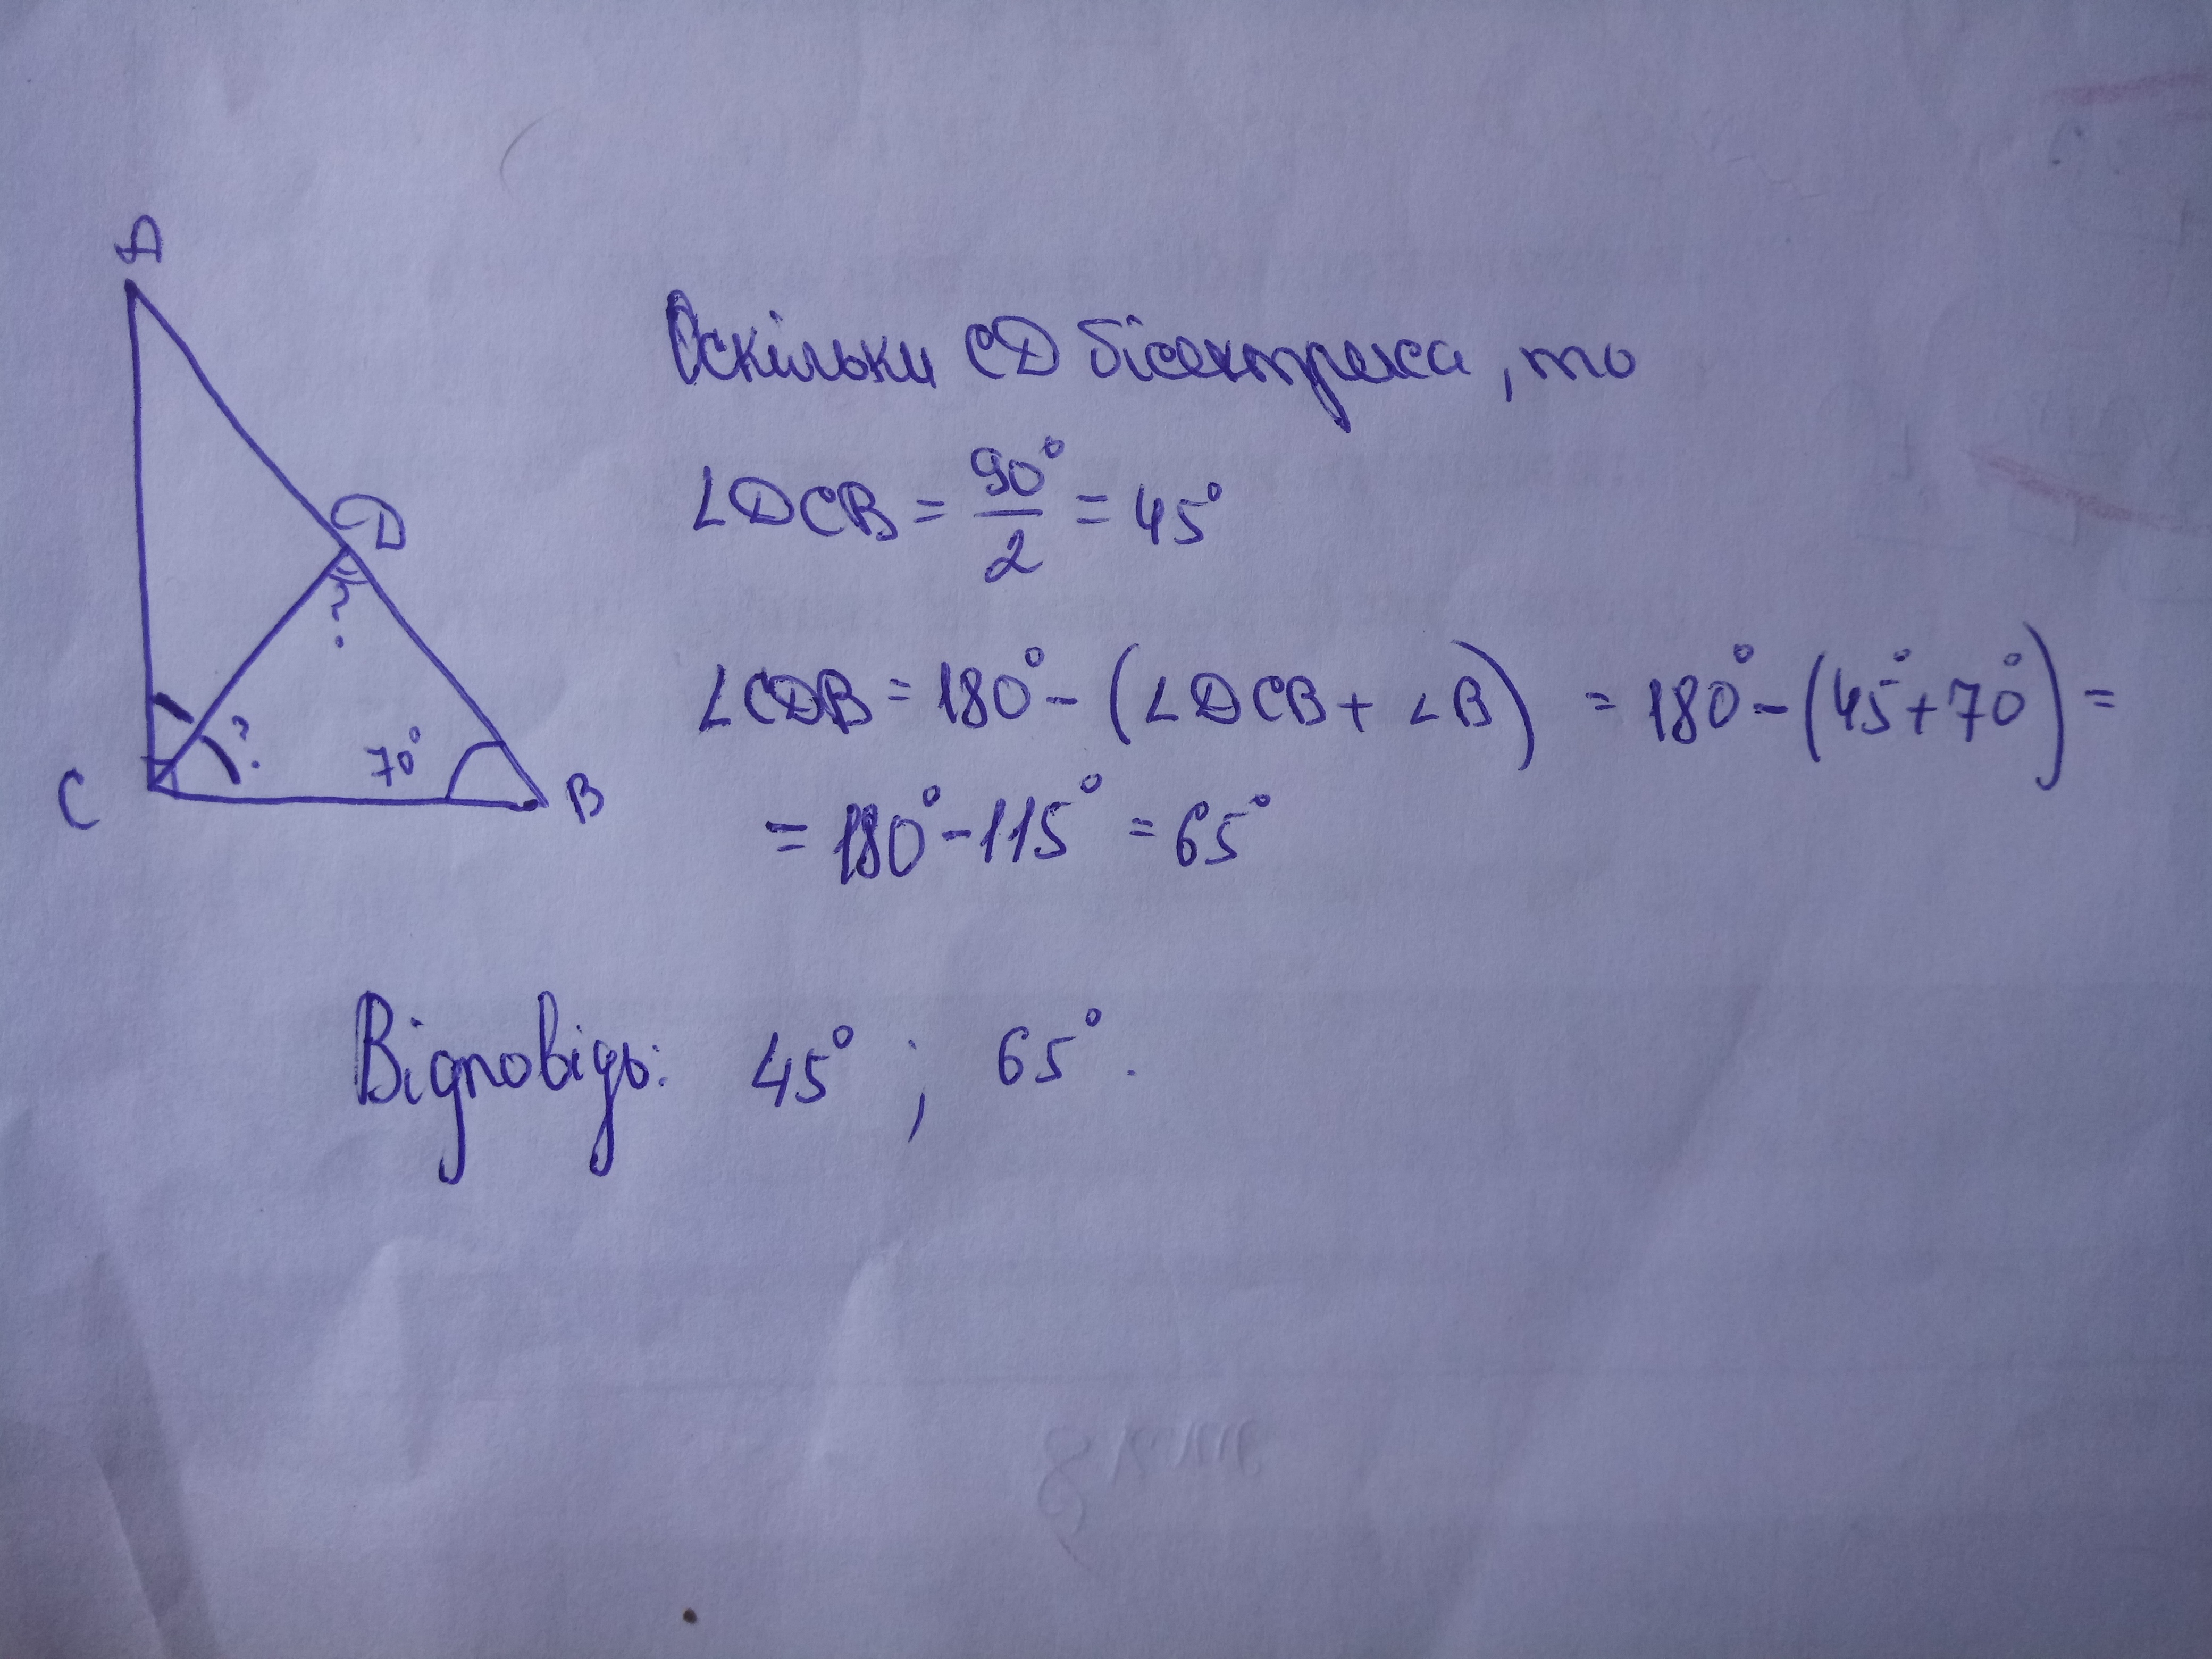 A
D
?
?
70°
C
B
Оскільки CD бісектриса, то
∠DCB = 90°/2 = 45°
∠CDB = 180° - (∠DCB + ∠B) = 180° - (45° + 70°) =
= 180° - 115° = 65°
Відповідь: 45° ; 65°.